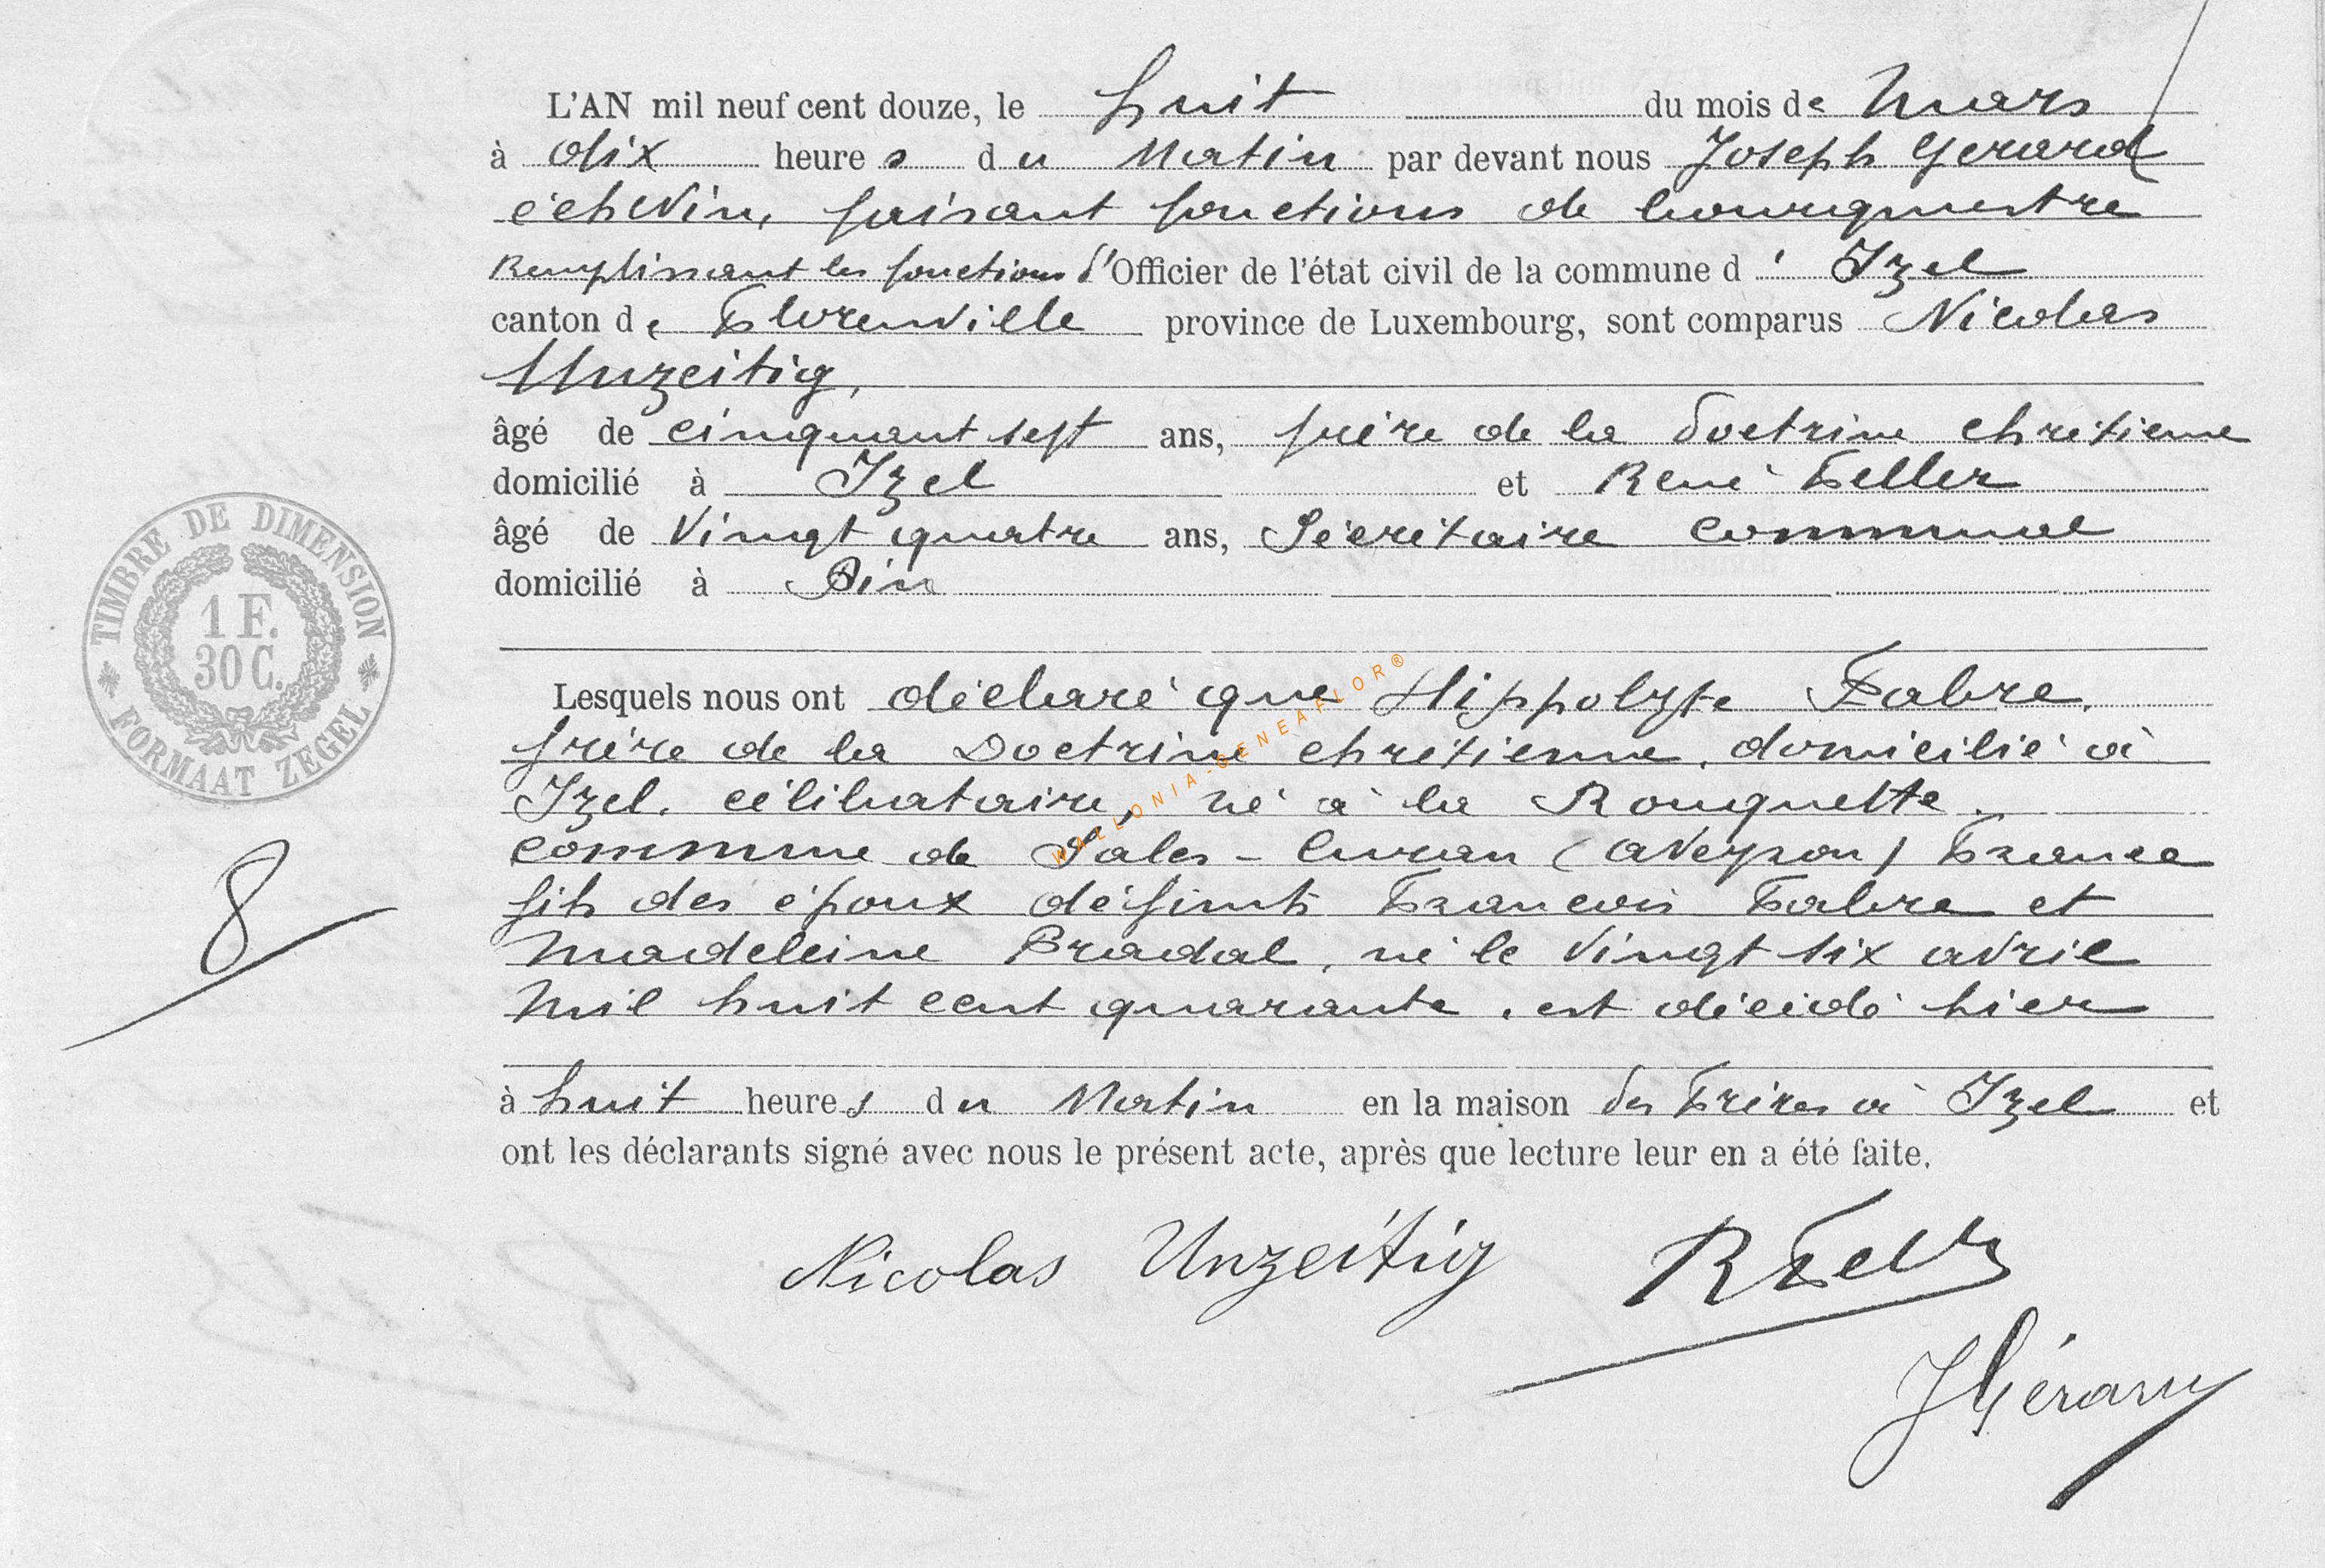 L'AN mil neuf cent douze, le huit du mois de Mars
à dix heures du Matin par devant nous Joseph Gerard
échevin, faisant fonctions de bourgmestre
Remplissant les fonctions d'Officier de l'état civil de la commune d' Izel
canton de Florenville province de Luxembourg, sont comparus Nicolas
Unzeitig,
âgé de cinquant sept ans, frère de la Doctrine chrétienne
domicilié à Izel et René Feller
âgé de Vingt quatre ans, Sécrétaire communal
domicilié à Pin
TIMBRE DE DIMENSION
1 F.
30 C.
FORMAAT ZEGEL
Lesquels nous ont déclaré que Hippolyte Fabre,
frère de la Doctrine chrétienne, domicilié à
Izel, célibataire, né à la Rouquette,
commune de Sales-Curan (Aveyron) France
fils des époux défunts Francois Fabre et
Madeleine Pradal, né le Vingt six avril
Mil huit cent quarante, est décédé hier
8
à huit heures du Matin en la maison des Frères à Izel et
ont les déclarants signé avec nous le présent acte, après que lecture leur en a été faite.
Nicolas Unzeitig RFeller
JGérard
WALLONIA-GENEAFLOR®